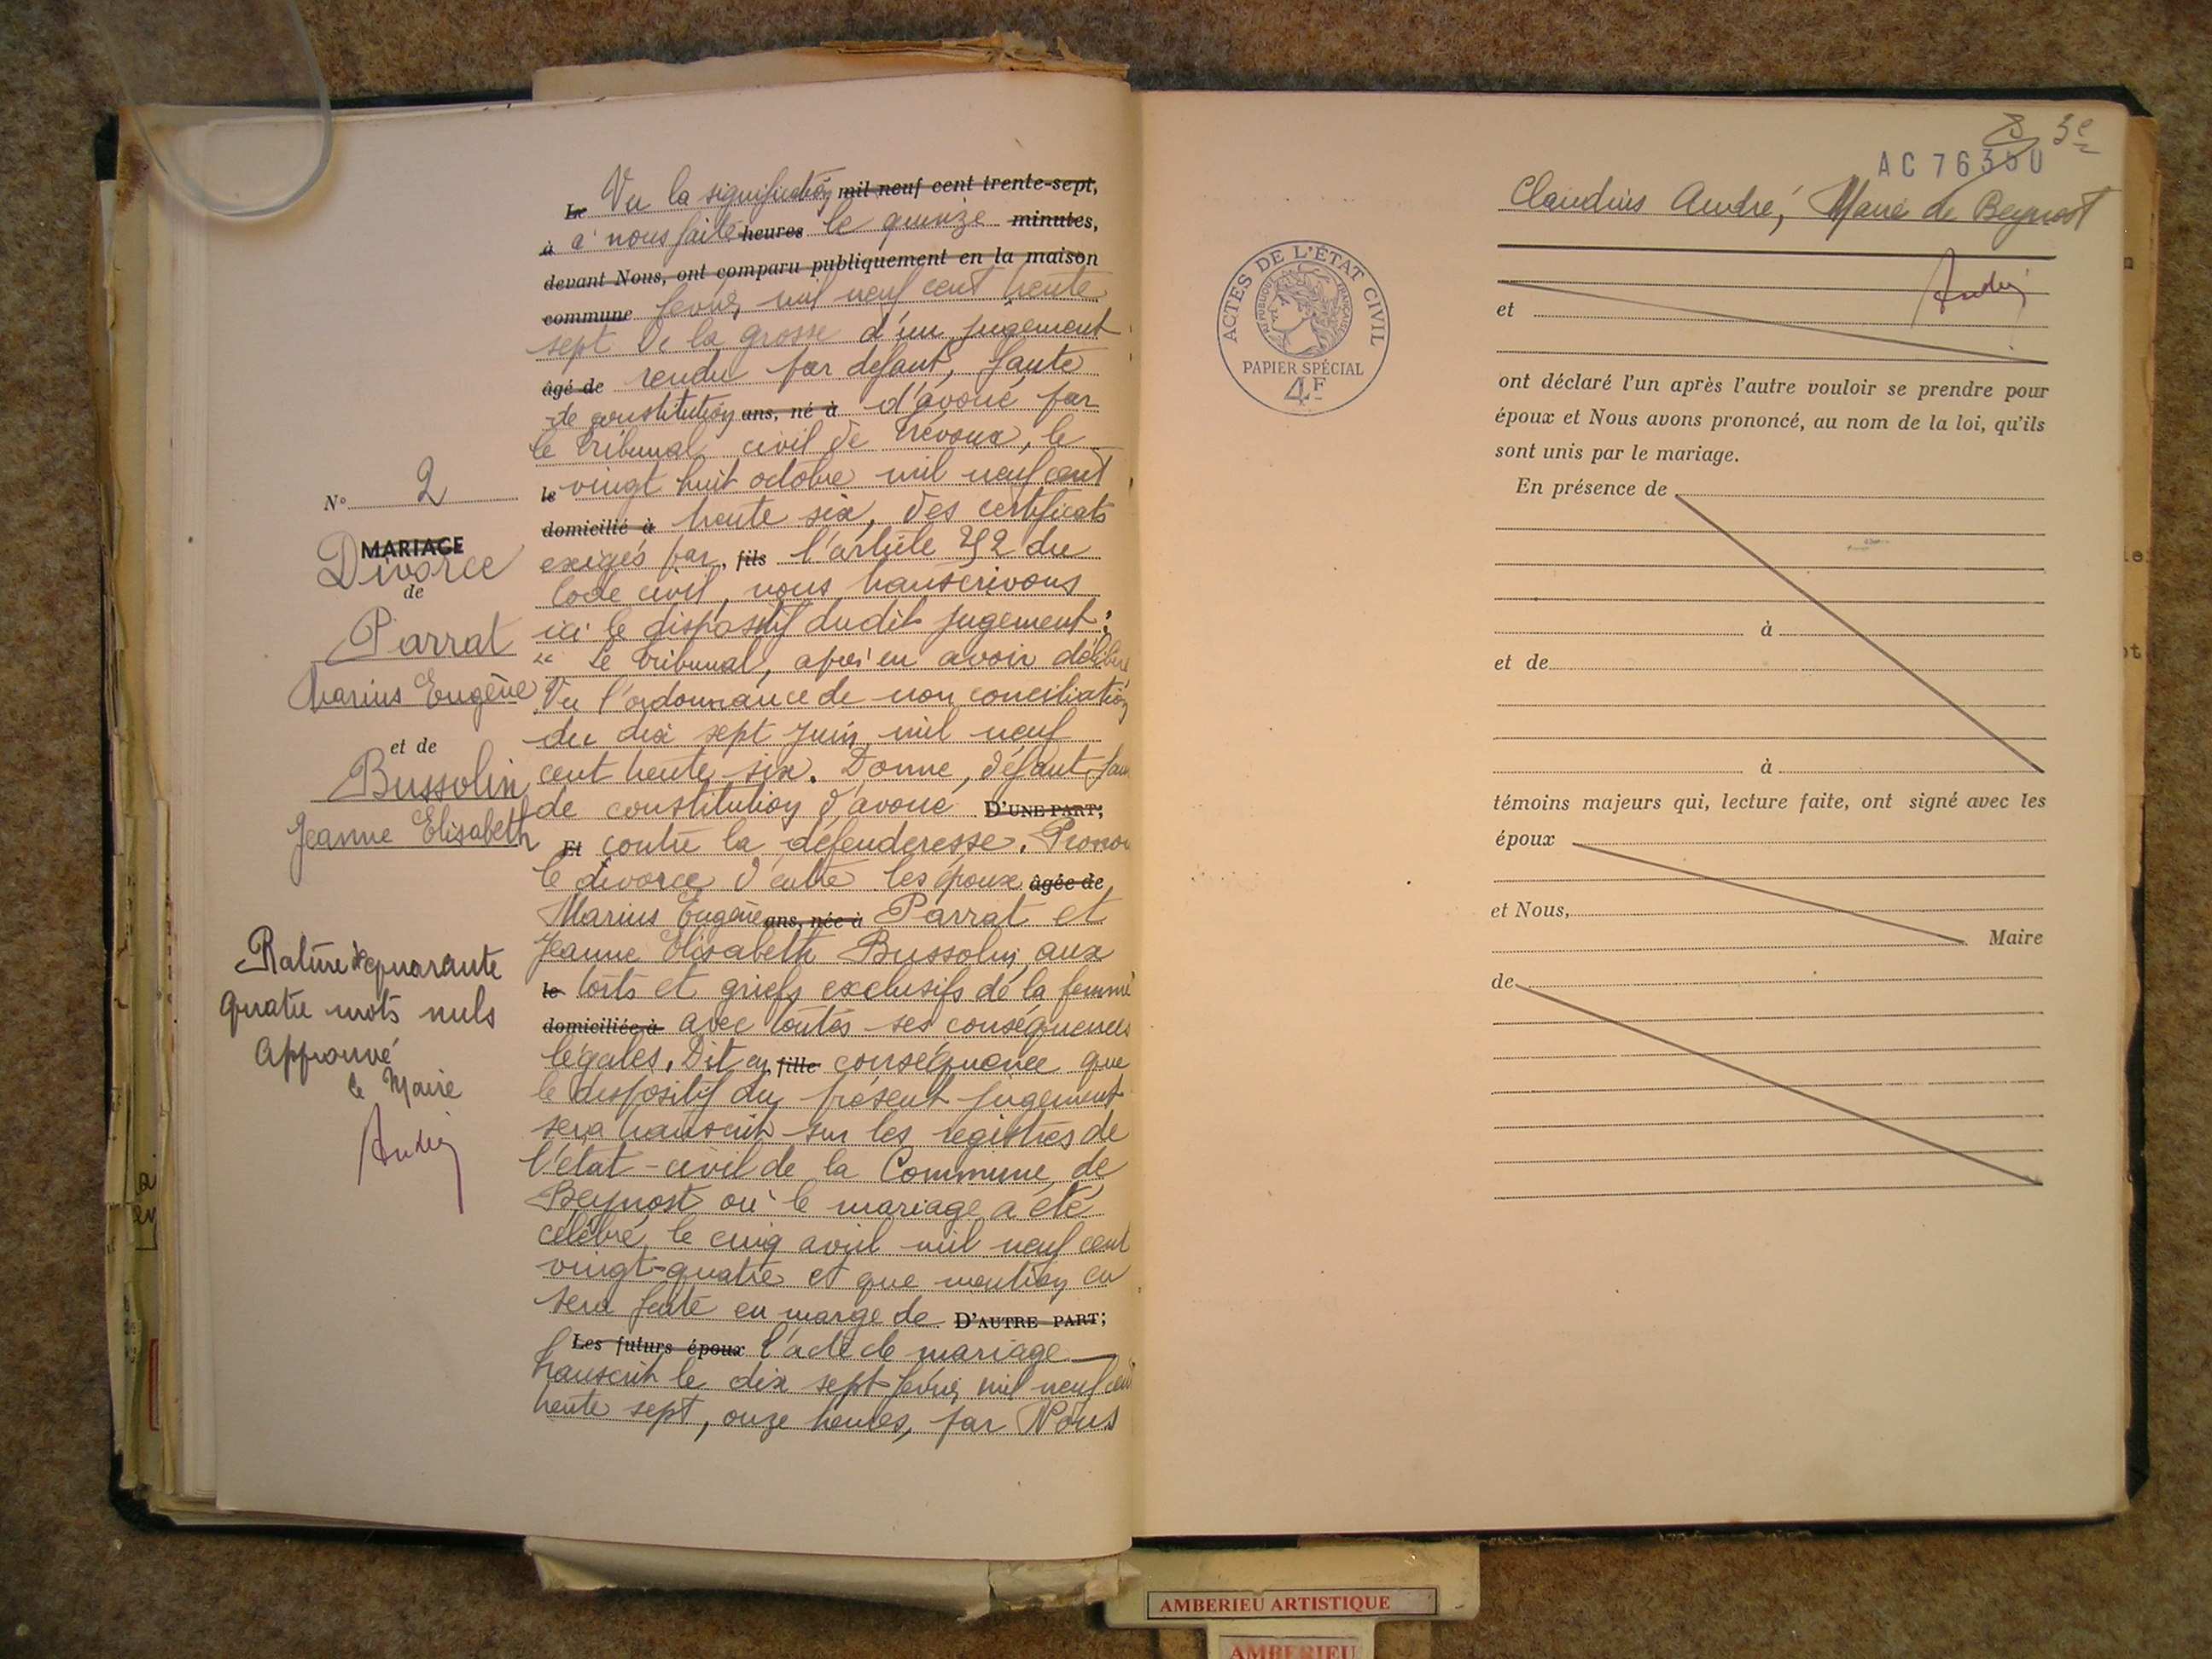 N° 2
MARIAGE
Divorce
de
Parrat
Marius Eugène
et de
Bussolin
Jeanne Elisabeth
Raturé quarante
quatre mots nuls
Approuvé
le Maire
André
Le Vu la signification mil neuf cent trente-sept,
à à nous faite heures le quinze minutes,
devant Nous, ont comparu publiquement en la maison
commune février mil neuf cent trente
sept de la grosse d'un jugement
âgé de rendu par défaut, faute
de constitution ans, né à d'avoué par
le Tribunal civil de Trévoux, le
le vingt huit octobre mil neuf cent
domicilié à trente six, des certificats
exigés par fils l'article 252 du
Code civil, nous transcrivons
ici le dispositif dudit jugement:
" Le Tribunal, après en avoir délibéré
Vu l'ordonnance de non conciliation
du dix sept juin mil neuf
cent trente six. Donne, défaut fau
de constitution d'avoué D'UNE PART;
Et contre la défenderesse. Prononc
le divorce d'entre les époux âgée de
Marius Eugène ans, née à Parrat et
Jeanne Elisabeth Bussolin aux
le torts et griefs exclusifs de la femme
domiciliée à avec toutes ses conséquences
légales. Dit en fille conséquence que
le dispositif du présent jugement
sera transcrit sur les registres de
l'état-civil de la Commune de
Beynost où le mariage a été
célébré le cinq avril mil neuf cent
vingt-quatre et que mention en
sera faite en marge de D'AUTRE PART;
Les futurs époux l'acte de mariage
transcrit le dix sept février mil neuf cent
trente sept, onze heures, par Nous
3e
AC 76350
Claudius André, Maire de Beynost
André
ACTES DE L'ÉTAT CIVIL
RÉPUBLIQUE FRANÇAISE
PAPIER SPÉCIAL
4F
et
ont déclaré l'un après l'autre vouloir se prendre pour
époux et Nous avons prononcé, au nom de la loi, qu'ils
sont unis par le mariage.
En présence de
à
et de
à
témoins majeurs qui, lecture faite, ont signé avec les
époux
et Nous,
Maire
de
AMBERIEU ARTISTIQUE
AMBERIEU